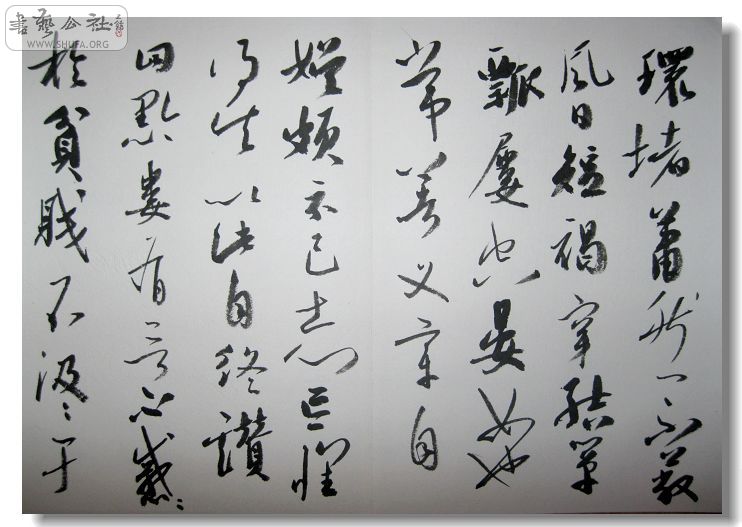 書藝公社
WWW.SHUFA.ORG
環堵蕭然不蔽
風日短褐穿結簞
瓢屢空晏如也
常著文章自
娛頗示己志忘懷
得失以此自終讚
曰黔婁有言不慼〻
於貧賤不汲〻于